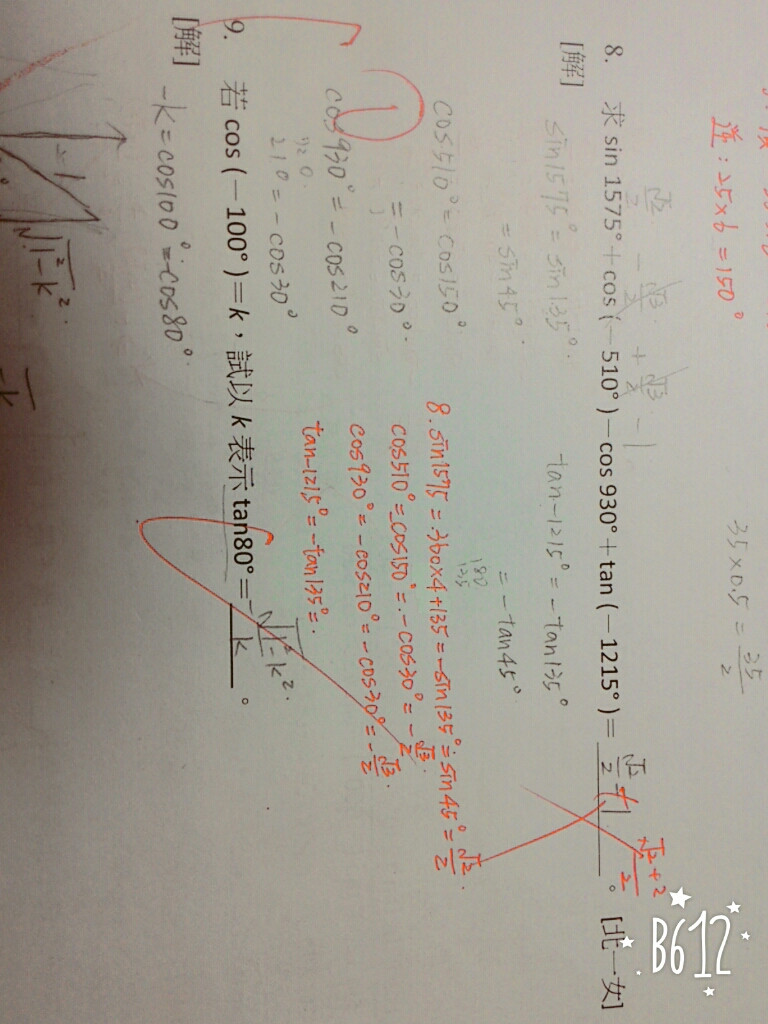 逆：25×6=150°
35×0.5=35/2
√2/2 - √3/2 + √3/2 - 1
8. 求 sin 1575°+cos (－510°)－cos 930°+tan (－1215°)= √2/2 + 1 。[北一女]
√2+2/2
[解]
sin1575°=sin135°.
=sin45°.
tan-1215°=-tan135°
=-tan45°
180
135
cos510°=cos150°
=-cos30°.
cos930°=-cos210°
210°=-cos30°
8. sin1575=360×4+135=-sin135°=sin45°=√2/2.
cos510°=cos150°=-cos30°=-√3/2.
cos930°=-cos210°=-cos30°=-√3/2.
tan-1215°=-tan135°=.
9. 若 cos (－100°)=k，試以 k 表示 tan80°= -√1²-k²/k 。
[解]
-k=cos100°=cos80°.
-1
√1²-k².
-k
B612